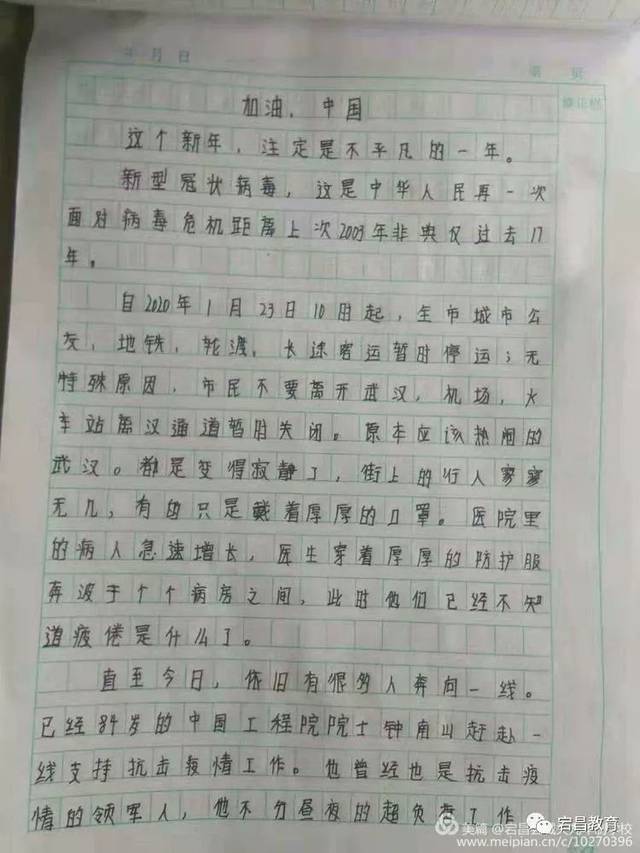 月 日
第 页
加油,中国
这个新年,注定是不平凡的一年。
新型冠状病毒,这是中华人民再一次
面对病毒危机距离上次2003年非典仅过去17
年。
自2020年1月23日10时起,全市城市公
交,地铁,轮渡,长途客运暂时停运;无
特殊原因,市民不要离开武汉,机场,火
车站离汉通道暂时关闭。原本应该热闹的
武汉。都是变得寂静了,街上的行人寥寥
无几,有的只是戴着厚厚的口罩。医院里
的病人急速增长,医生穿着厚厚的防护服
奔波于个个病房之间,此时他们已经不知
道疲倦是什么了。
直至今日,依旧有很多人奔向一线。
已经84岁的中国工程院院士钟南山赶赴一
线支持抗击疫情工作。他曾经也是抗击疫
情的领军人,他不分昼夜的超负荷工作
宕昌教育
美篇 @宕昌县
学校
www.meipian.cn/c/10270396